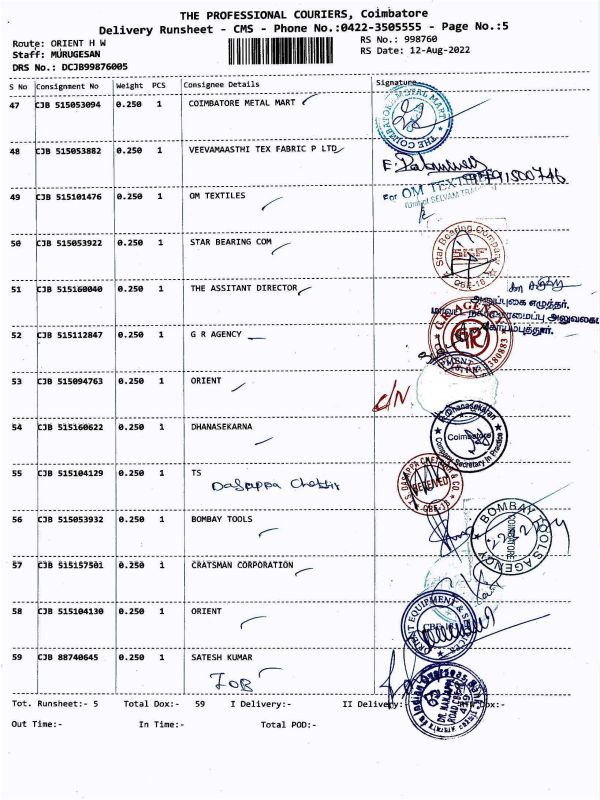 THE PROFESSIONAL COURIERS, Coimbatore
Delivery Runsheet - CMS - Phone No.:0422-3505555 - Page No.:5
Route: ORIENT H W
RS No.: 998760
Staff: MURUGESAN
RS Date: 12-Aug-2022
DRS No.: DCJB99876005
S No Consignment No Weight PCS Consignee Details Signature
47 CJB 515053094 0.250 1 COIMBATORE METAL MART
THE COIMBATORE METAL MART
48 CJB 515053882 0.250 1 VEEVAMAASTHI TEX FABRIC P LTD
49 CJB 515101476 0.250 1 OM TEXTILES
For OM TEXTILES
50 CJB 515053922 0.250 1 STAR BEARING COM
Star Bearing Company
CBE-18
51 CJB 515160040 0.250 1 THE ASSITANT DIRECTOR
அனுப்புகை எழுத்தர்.
கோயம்புத்தூர்.
52 CJB 515112847 0.250 1 G R AGENCY
G.R. AGENCY
GR
53 CJB 515094763 0.250 1 ORIENT
C/N
54 CJB 515160622 0.250 1 DHANASEKARNA
Dhanasekaran
Coimbatore
Company Secretary in Practice
55 CJB 515104129 0.250 1 TS
Dasappa Chettir
T.S. DASAPPA CHETTIR & CO.
RECEIVED
CBE-18
56 CJB 515053932 0.250 1 BOMBAY TOOLS
BOMBAY TOOLS AGENCY
COIMBATORE
57 CJB 515157501 1 CRATSMAN CORPORATION
58 CJB 515104130 0.250 1 ORIENT
ORIENT EQUIPMENT & SERVICES
CBE-18
59 CJB 88740645 0.250 1 SATESH KUMAR
IOB
Indian Overseas Bank
Tot. Runsheet:- 5 Total Dox:- 59 I Delivery:- II Delivery:- Dox:-
Out Time:- In Time:- Total POD:-